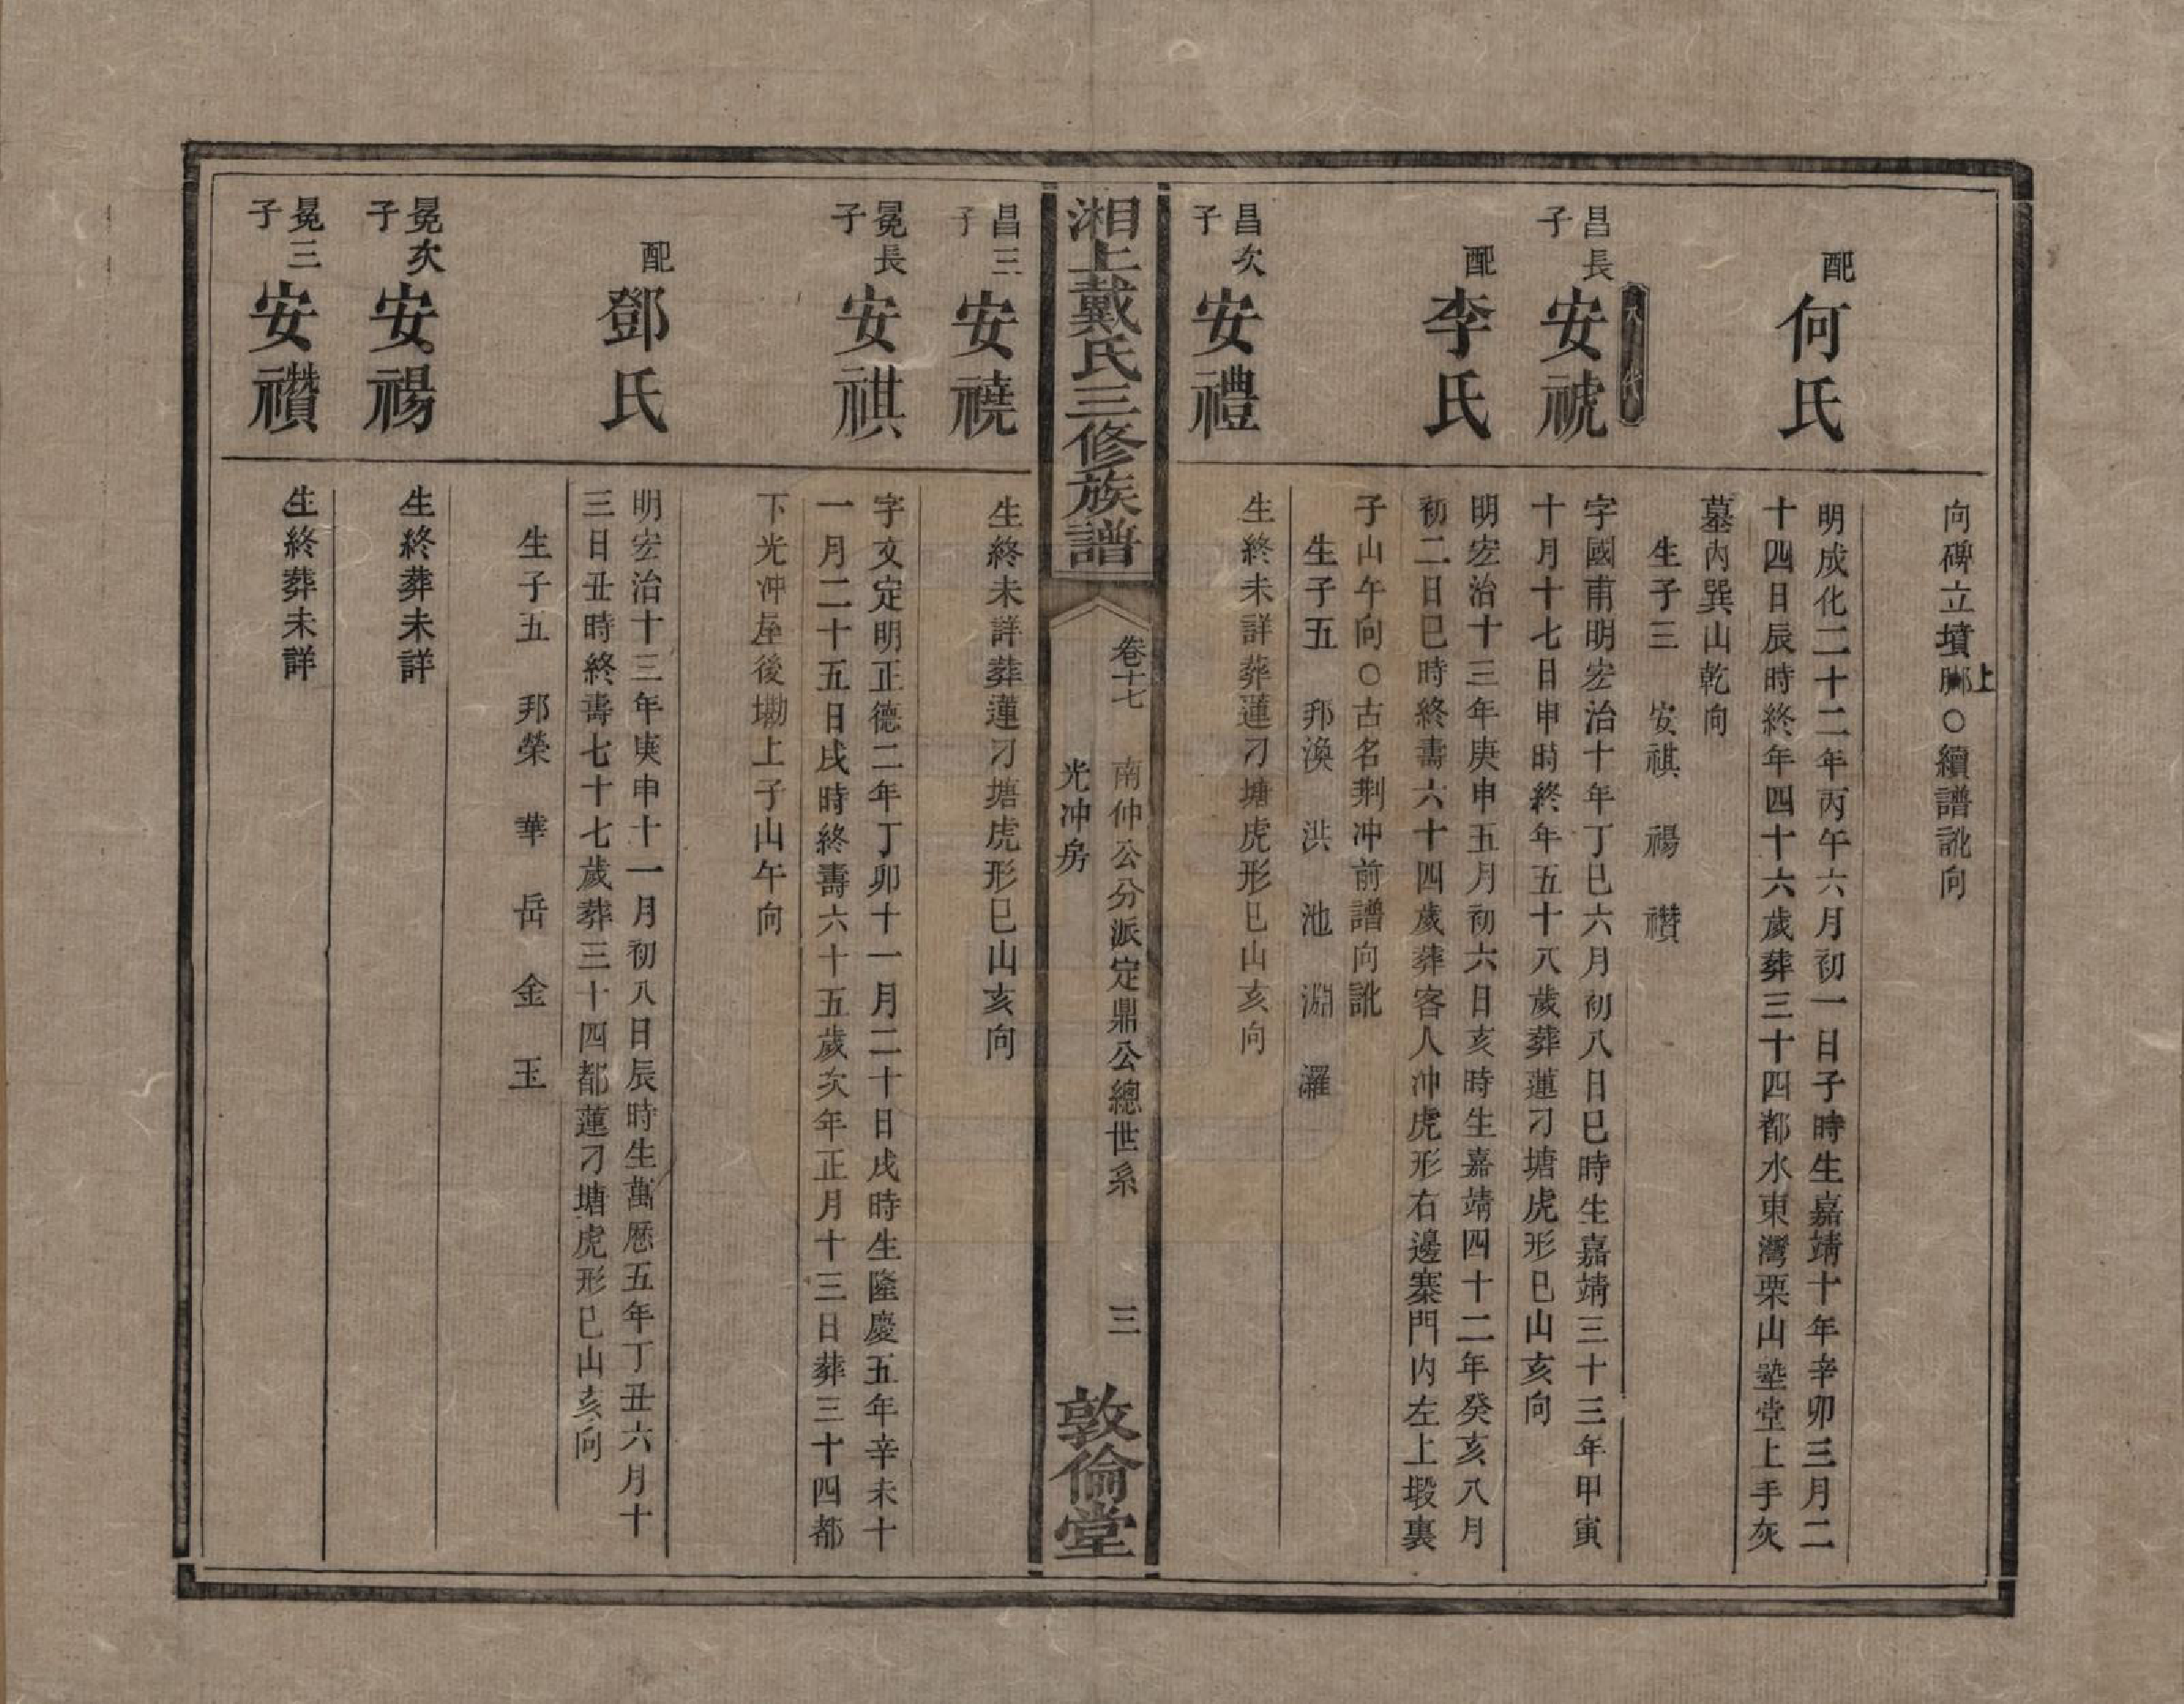 向碑立墳腳上○續譜訛向
配
何氏
明成化二十二年丙午六月初一日子時生嘉靖十年辛卯三月二
十四日辰時終年四十六歲葬三十四都水東灣栗山塾堂上手灰
墓內巽山乾向
生子三　安祺　禓　禶
八代
昌長
子
安禠
字國甫明宏治十年丁巳六月初八日巳時生嘉靖三十三年甲寅
十月十七日申時終年五十八歲葬蓮刁塘虎形巳山亥向
配
李氏
明宏治十三年庚申五月初六日亥時生嘉靖四十二年癸亥八月
初二日巳時終壽六十四歲葬客人冲虎形右邊寨門內左上塅裏
子山午向○古名荆冲前譜向訛
生子五　邦渙　洪　池　淵　灑
昌次
子
安禮
生終未詳葬蓮刁塘虎形巳山亥向
湘上戴氏三修族譜
卷十七
南仲公分派定鼎公總世系
光冲房
三
敦倫堂
昌三
子
安禬
生終未詳葬蓮刁塘虎形巳山亥向
冕長
子
安祺
字文定明正德二年丁卯十一月二十日戌時生隆慶五年辛未十
一月二十五日戌時終壽六十五歲次年正月十三日葬三十四都
下光冲屋後墈上子山午向
配
鄧氏
明宏治十三年庚申十一月初八日辰時生萬厯五年丁丑六月十
三日丑時終壽七十七歲葬三十四都蓮刁塘虎形巳山亥向
生子五　邦榮　華　岳　金　玉
冕次
子
安禓
生終葬未詳
冕三
子
安禶
生終葬未詳